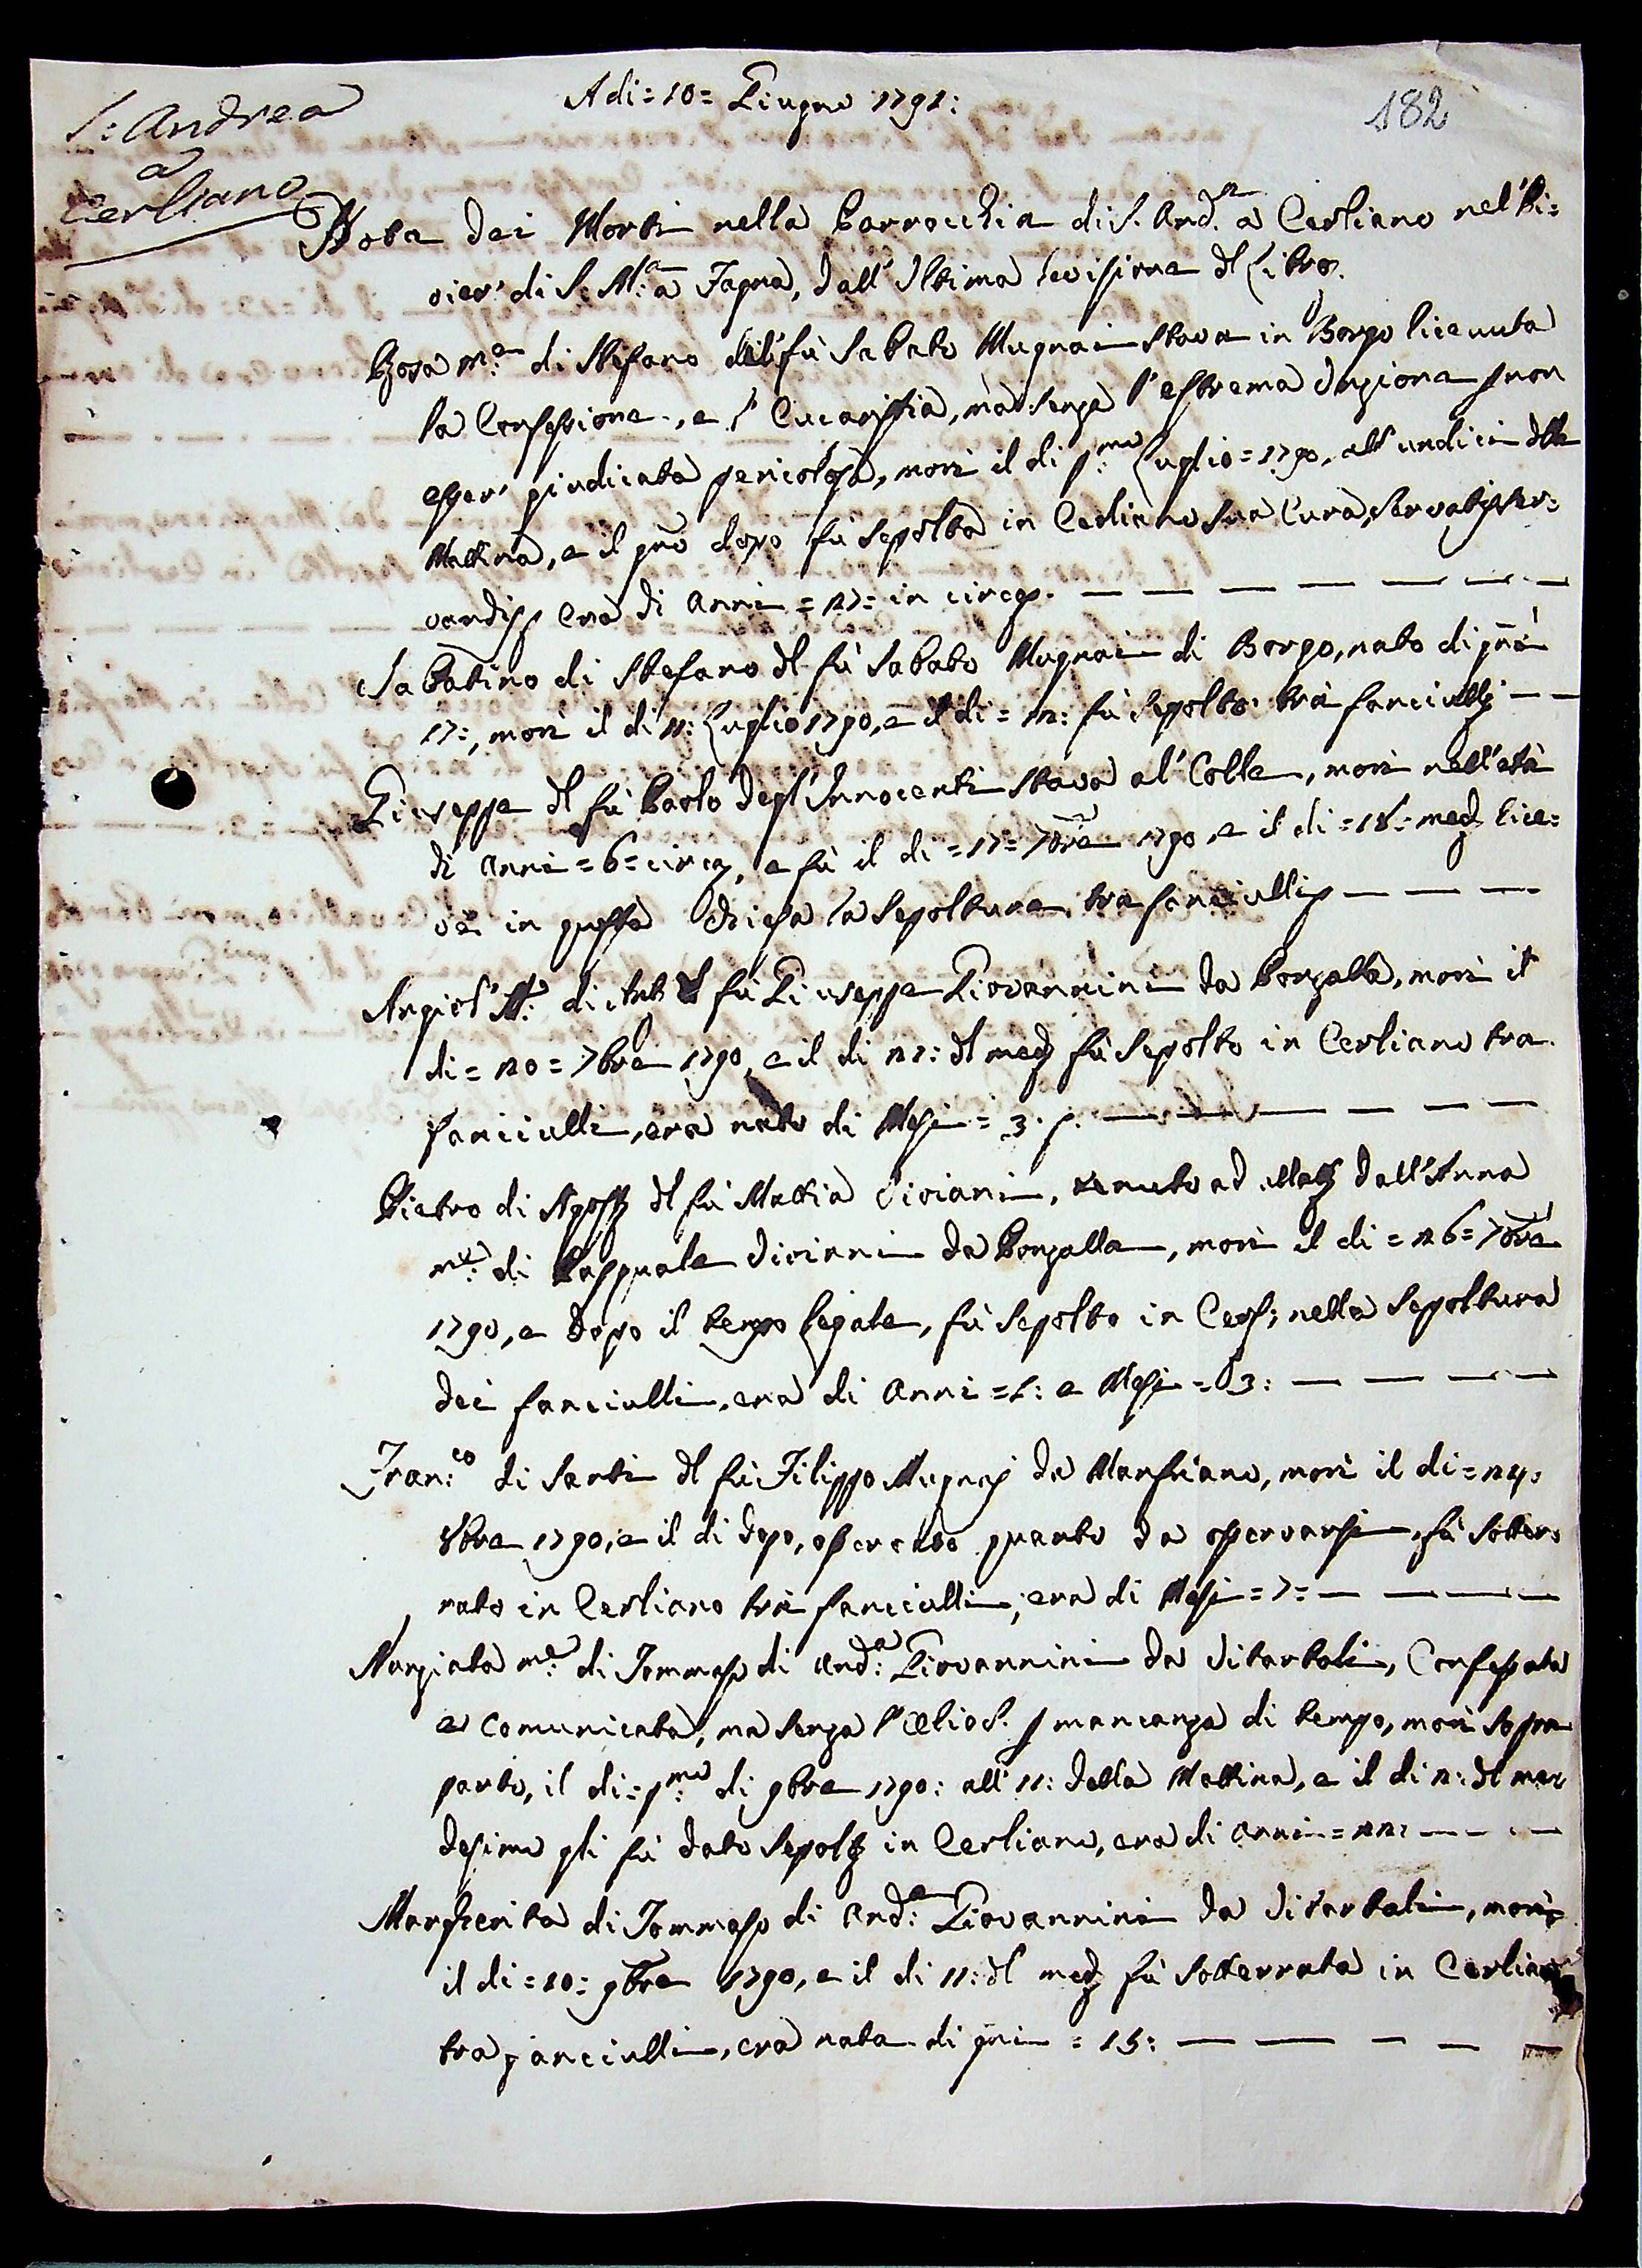 A di = 10 = Giugno 1791:
182
S: Andrea
a
Cerliano
Nota dei Morti nella Parrocchia di S. And.ª a Cerliano nel Pi=
vier' di S. M.ª a Fagna, dall' Ultima revisione dl Libro.
Rosa m.e di Stefano del fù Sabato Mugnai stava in Borgo ricevuta
la Confessione, e l' Eucaristia, mà senza l'estrema Unzione p non
esser' giudicata pericolosa, morì il di p.mo Luglio = 1790, all' undici dlla
Mattina, e il gno dopo fù sepolta in Cerliano sua Cura, servatis ser=
vandis, era di Anni = 27 = in circa. —
Sabatino di Stefano dl fù Sabato Mugnai di Borgo, nato di gni
17:, morì il di 11: Luglio 1790, e il di = 12: fù sepolto trà fanciulli —
Giuseppe dl fù Paolo degl' Innocenti stava al' Colle, morì nell'età
di Anni = 6 = circa, e fù il di = 17 = 7bre 1790 e il di = 18 = med. rice=
vè in questa Chiesa la sepoltura tra fanciulli —
Angiol' M.ª di Ant. dl fù Giuseppe Giovannini da Ponzalla, morì il
di = 20 = 7bre 1790, e il di 21: dl med. fù sepolto in Cerliano tra
fanciulli, era nato di Mesi = 3. —
Pietro di Agost. dl fù Mattia Viviani, tenuto ad allatt. dall'Anna
m.e di Pasquale Viviani da Ponzalla, morì il di = 26 = 7bre
1790, e dopo il tempo legale, fù sepolto in Cerl; nella sepoltura
dei fanciulli, era di Anni = 1: e Mesi = 3: —
Fran.co di Santi dl fù Filippo Mugnai da Marfriano, morì il di = 24 =
8bre 1790, e il di dopo, osservato quanto da osservarsi, fù sotter=
rato in Cerliano trà fanciulli, era di Mesi = 7 = —
Nunziata m.e di Tommaso di And.ª Giovannini da Vitartoli, Confessata
e comunicata, ma senza l'Olio S. p mancanza di tempo, morì sopra
parto, il di = p.mo di 9bre 1790: all' 11: della Mattina, e il di 2: dl me=
desimo gli fù dato sepolt. in Cerliano, era di anni = 22: —
Margherita di Tommaso di And.ª Giovannini da Vitartoli, morì
il di = 10 = 9bre 1790, e il di 11: dl med. fù sotterrata in Cerliano
tra fanciulli, era nata di gni = 15: —